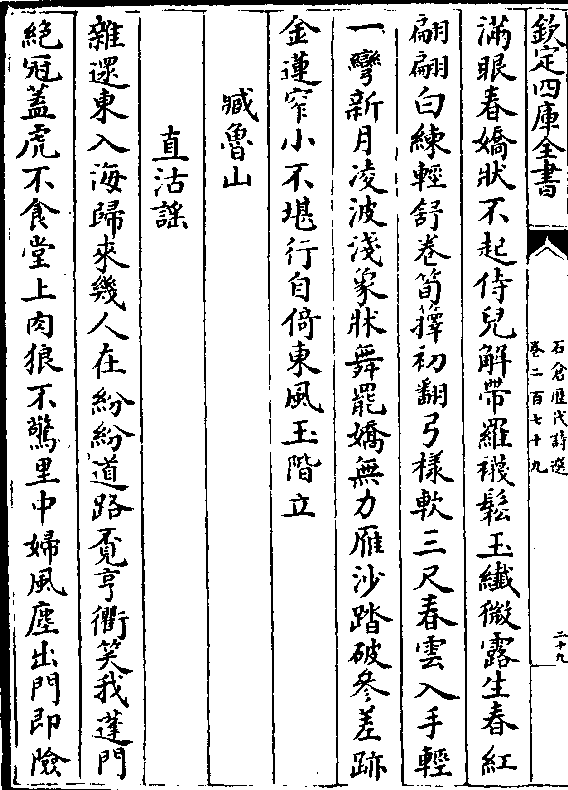 欽定四庫全書
石倉歷代詩選
卷二百七十九
二十九
滿眼春嬌狀不起侍兒解帶羅襪鬆玉纎微露生春紅
翩翩白練輕舒卷筍籜初翻弓樣軟三尺春雲入手輕
一彎新月凌波淺象牀舞罷嬌無力雁沙踏破參差跡
金蓮窄小不堪行自倚東風玉階立
臧魯山
直沽謡
雜遝東入海歸來幾人在紛紛道路覔亨衢笑我蓬門
絶冠蓋虎不食堂上肉狼不驚里中婦風塵出門即險